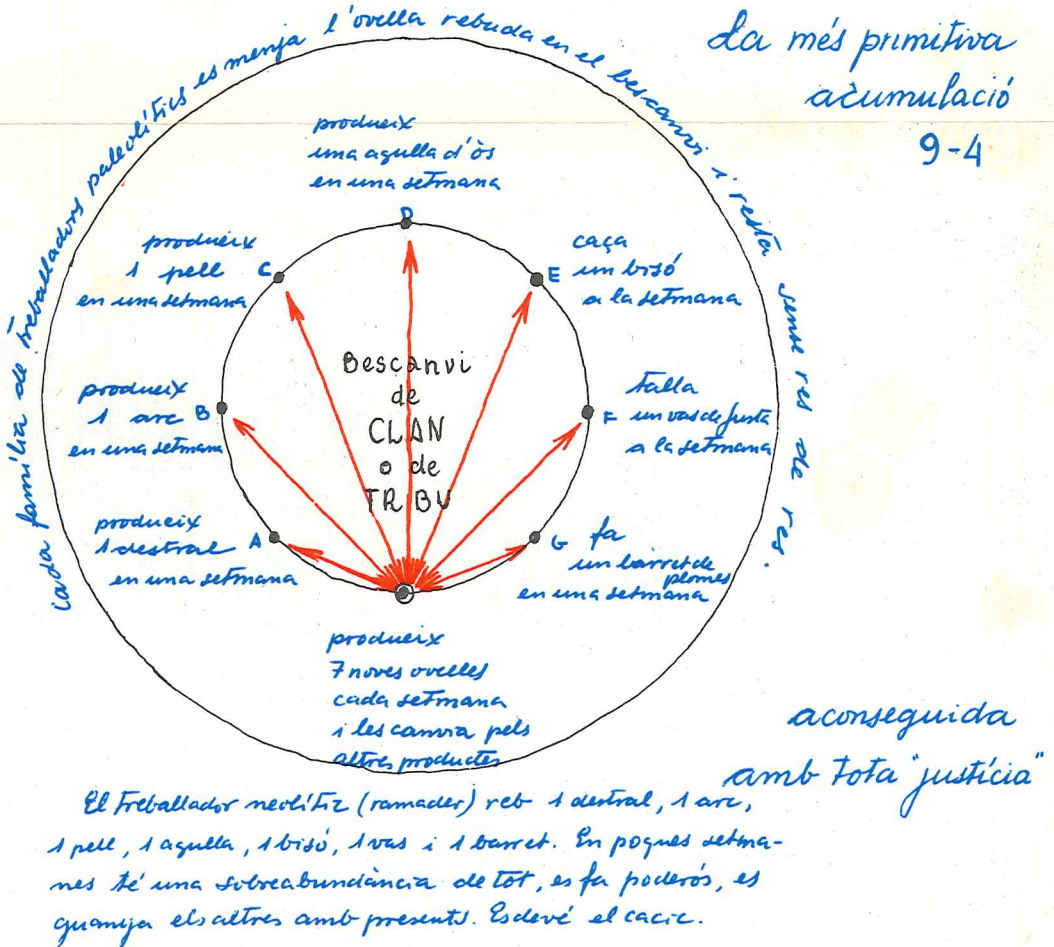 La més primitiva
acumulació
9-4
cada família de treballadors paleolítics es menja l'ovella rebuda en el bescanvi i resta sense res de res.
produeix
una agulla d'òs
en una setmana
D
produeix
1 pell
en una setmana
C
caça
un bisó
a la setmana
E
produeix
1 arc
en una setmana
B
talla
un vas de fusta
a la setmana
F
produeix
1 destral
en una setmana
A
fa
un barret de
plomes
en una setmana
G
Bescanvi
de
CLAN
o de
TRIBU
produeix
7 noves ovelles
cada setmana
i les canvia pels
altres productes
aconseguida
amb tota "justícia"
El treballador neolític (ramader) reb 1 destral, 1 arc,
1 pell, 1 agulla, 1 bisó, 1 vas i 1 barret. En poques setma-
nes té una sobreabundància de tot, es fa poderós, es
guanya els altres amb presents. Esdevé el cacic.